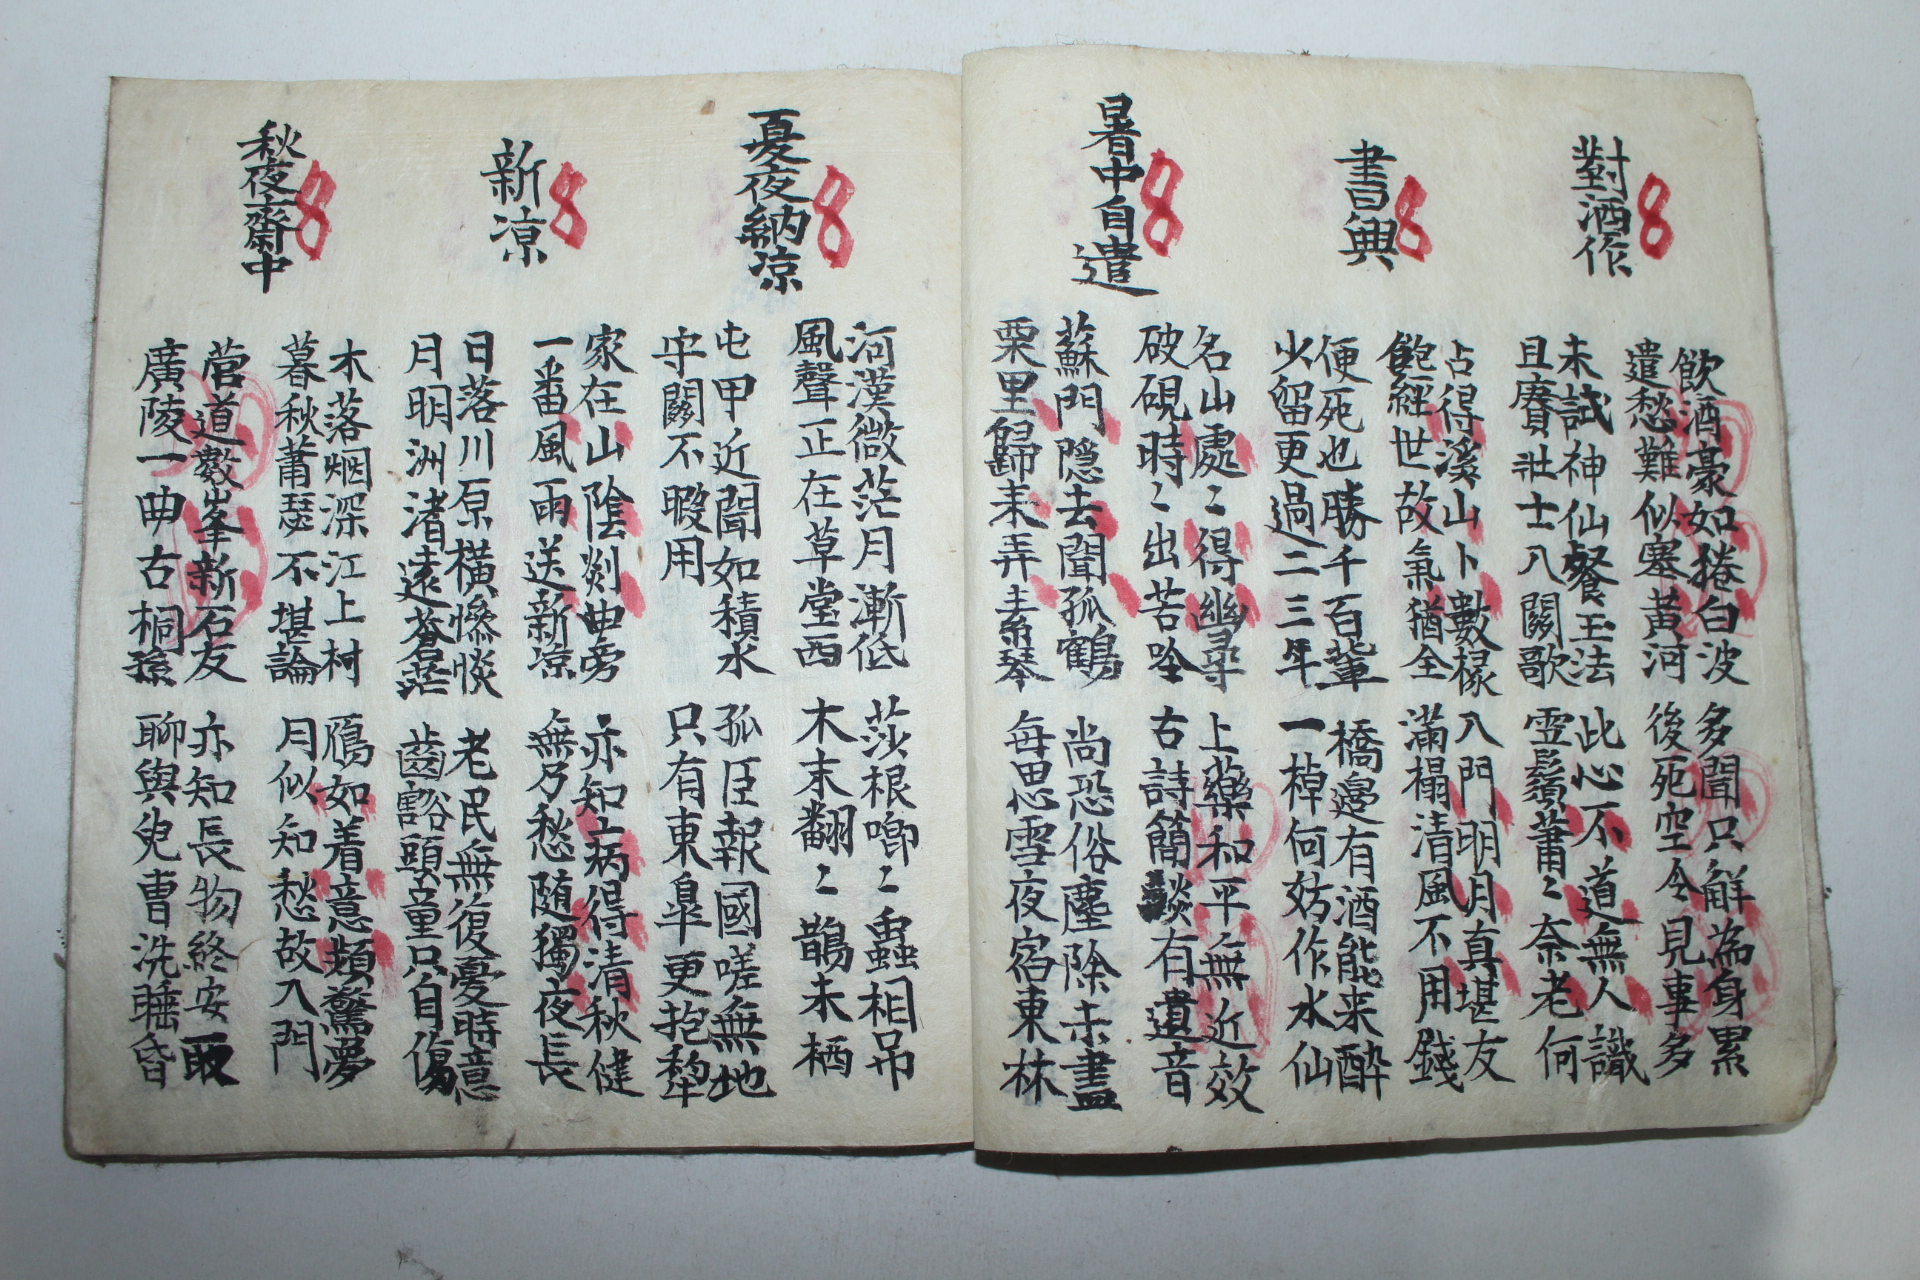 對酒作
8
飲酒豪如捲白波 多聞只解為身累
遣愁難似塞黃河 後死空令見事多
未試神仙餐玉法 此心不道無人識
且賡壯士八闋歌 雪鬢蕭〻奈老何
書興
8
占得溪山卜數椽 八門明月真堪友
飽經世故氣猶全 滿榻清風不用錢
便死也勝千百輩 橋邊有酒能来醉
少留更過二三年 一棹何妨作水仙
暑中自遣
8
名山處〻得幽尋 上藥和平無近效
破硯時〻出苦吟 古詩簡談有遺音
蘇門隐去聞孤鶴 尚恐俗塵除未盡
栗里歸来弄素琴 每思雪夜宿東林
夏夜納凉
8
河漢微茫月漸低 莎根喞〻蟲相吊
風聲正在草堂西 木末翻〻鵲未栖
屯甲近聞如積水 孤臣報國嗟無地
守闕不暇用 只有東皐更抱犂
新凉
8
家在山陰剡曲旁 亦知病得清秋健
一番風雨送新凉 無乃愁随獨夜長
日落川原橫慘惔 老民無復憂時意
月明洲渚遠蒼茫 齒豁頭童只自傷
秋夜齋中
8
木落烟深江上村 鴈如着意頻驚夢
暮秋蕭瑟不堪論 月似知愁故入門
菅道數峯新石友 亦知長物終安取
廣陵一曲古桐孫 聊與兒曹洗睡昏